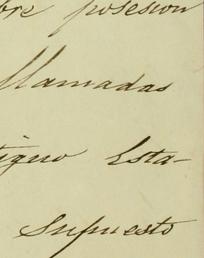 bre posesion
llamadas
tiguo Esta-
Supuesto